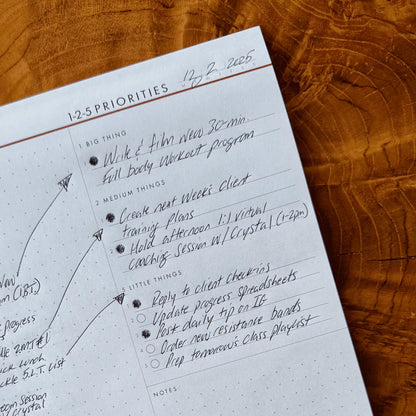 12/2/2025
1-2-5 PRIORITIES
1 BIG THING
Write & film new 30-min.
full body workout program
2 MEDIUM THINGS
Create next week's client
training plans
Hold afternoon 1:1 virtual
coaching session w/ Crystal (1-2pm)
5 LITTLE THINGS
Reply to client check-ins
Update progress spreadsheets
Post daily tip on IG
Order new resistance bands
Prep tomorrow's class playlist
NOTES
(1 B.T.)
progress
2 M.T. #1
lunch
5 L.T. List
session
Crystal